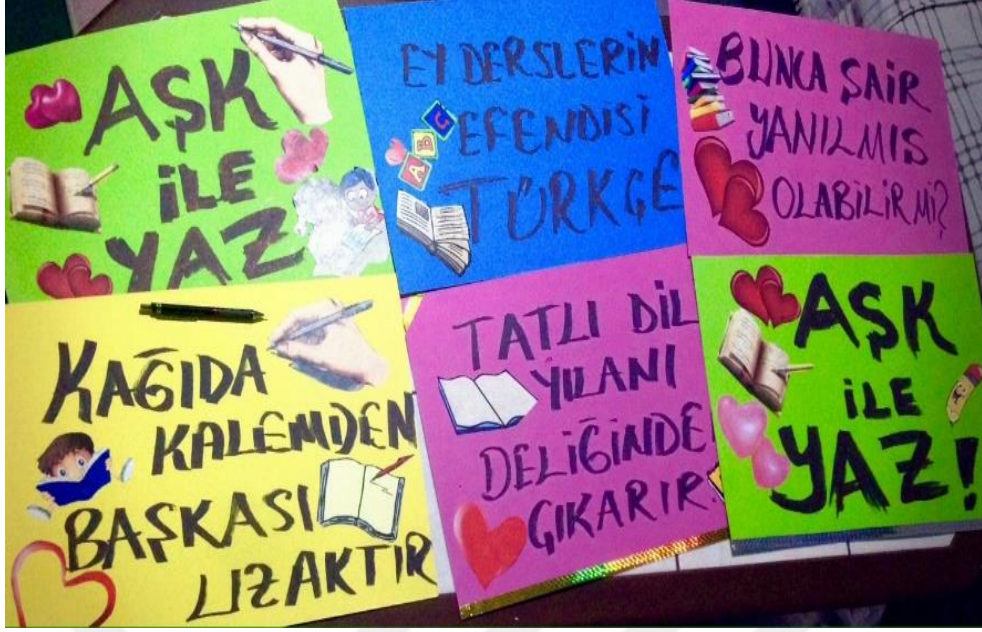 AŞK
İLE
YAZ
EY DERSLERİN
EFENDİSİ
TÜRKÇE
BUNCA ŞAİR
YANILMIŞ
OLABİLİR Mİ?
KAĞIDA
KALEMDEN
BAŞKASI
UZAKTIR
TATLI DİL
YILANI
DELİĞİNDE
ÇIKARIR
AŞK
İLE
YAZ!